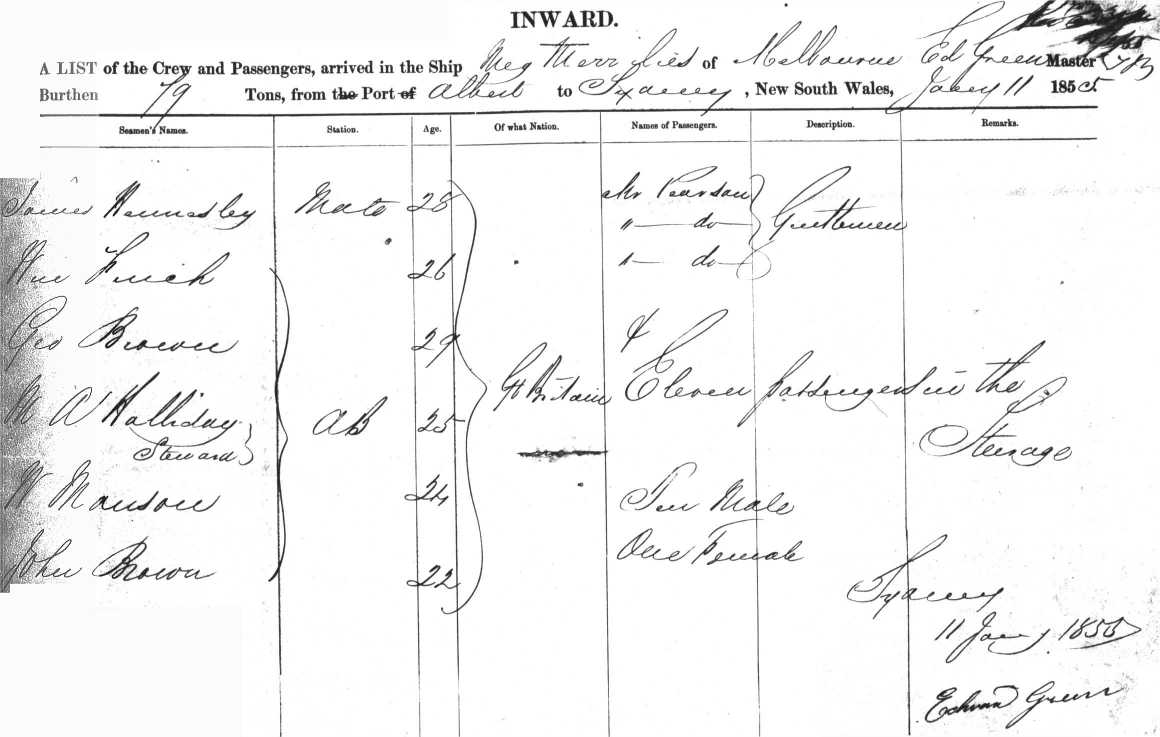 INWARD.
A LIST of the Crew and Passengers, arrived in the Ship Meg Merrilies of Melbourne Ed Green Master
Burthen 79 Tons, from the Port of Albert to Sydney, New South Wales, Jany 11 1855.
Seamen's Names. Station. Age. Of what Nation. Names of Passengers. Description. Remarks.
James Hennesley Mate 28 Mr Pearson Gentlemen
" do
Wm Finch 26 " do
Geo Brown 29 &
Gt Britain Eleven passengers in the
M A Halliday AB 25 Steerage
Steward
W Manson 24 Ten Male
One Female
John Brown 22
Sydney
11 Jany 1855
Edward Green